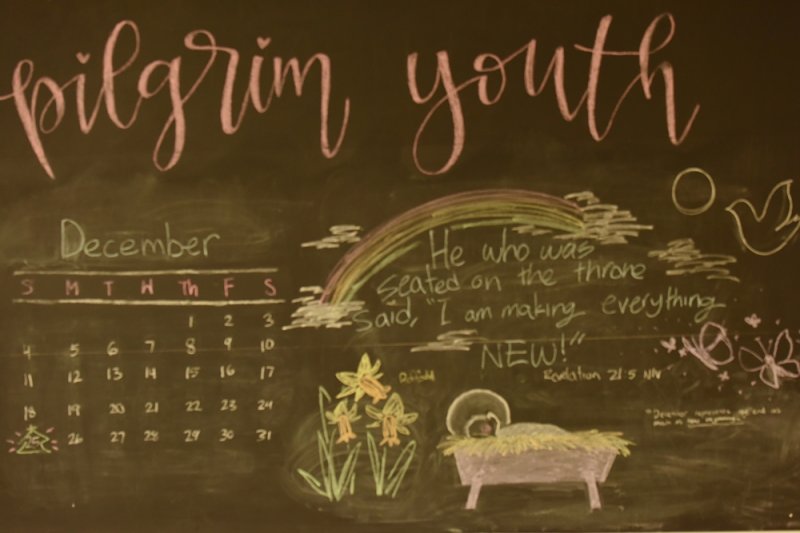 pilgrim youth
December
S M T W Th F S
1 2 3
4 5 6 7 8 9 10
11 12 13 14 15 16 17
18 19 20 21 22 23 24
25 26 27 28 29 30 31
He who was
seated on the throne
said, "I am making everything
NEW!"
Revelation 21:5 NIV